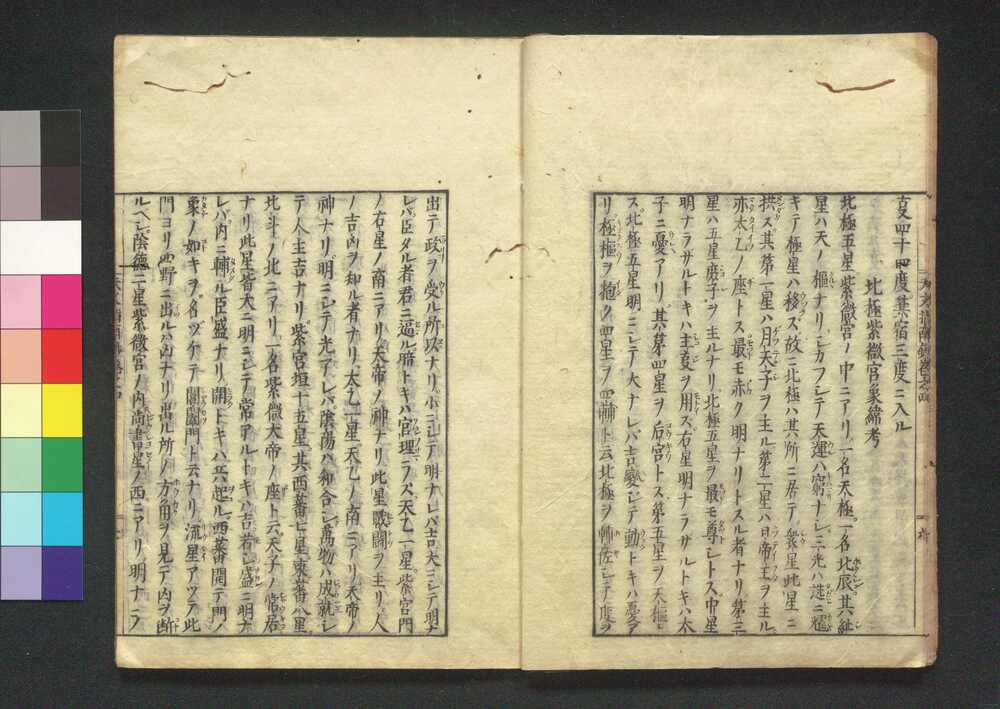 支四十四度箕宿三度ニ入ル
北極紫微宮象緯考
北極五星紫微宮ノ中ニアリ一名天極一名北辰其紐
星ハ天ノ樞ナリシカフシテ天運ハ窮ナシ三光ハ迭ニ耀
キテ極星ハ移ズ故ニ北極ハ其所ニ居テ衆星此星ニ
拱ス其第一星ハ月天子ヲ主ル第二星ハ日帝王ヲ主ル
亦太乙ノ座トス最モ赤ク明ナリトスル者ナリ第三
星ハ五星庶子ヲ主ルナリ北極五星ヲ最モ尊シトス中星
明ナラザルトキハ主変ヲ用ズ右星明ナラザルトキハ太
子ニ憂アリ其第四星ヲ后宮トス第五星ヲ天樞ト
ス北極五星明ニシテ大ナレバ吉變シテ動トキハ憂ア
リ極樞ヲ抱ク四星ヲ四輔ト云北極ヲ輔佐シテ度ヲ
出テ政ヲ受ル所以ナリ小ニシテ明ナレバ吉大ニシテ明ナ
レバ臣タル者君ニ逼ル暗トキハ官理ラズ天乙一星紫宮門
ノ右星ノ南ニアリ天帝ノ神ナリ此星戰鬪ヲ主リ人
ノ吉凶ヲ知ル者ナリ太乙一星天乙ノ南ニアリ天帝ノ
神ナリ明ニシテ光アレバ陰陽ハ和合シ萬物ハ成就シ
テ人主吉ナリ紫宮垣十五星其西蕃七星東蕃八星
北斗ノ北ニアリ一名紫微大帝ノ座ト云天子ノ常居
ナリ此星皆大ニ明ニシテ常アルトキハ吉若シ盛ニ明ナ
レバ内ニ輔ル臣盛ナリ開トキハ兵起ル西蕃開テ門ノ
象ノ如キヲ名ヅケテ閶闔門ト云ナリ流星アツテ此
門ヨリ四野ニ出ルハ凶ナリ出ル所ノ方角ヲ見テ内ヲ断
ルベシ陰德二星紫微宮ノ内尚書星ノ西ニアリ明ナラ